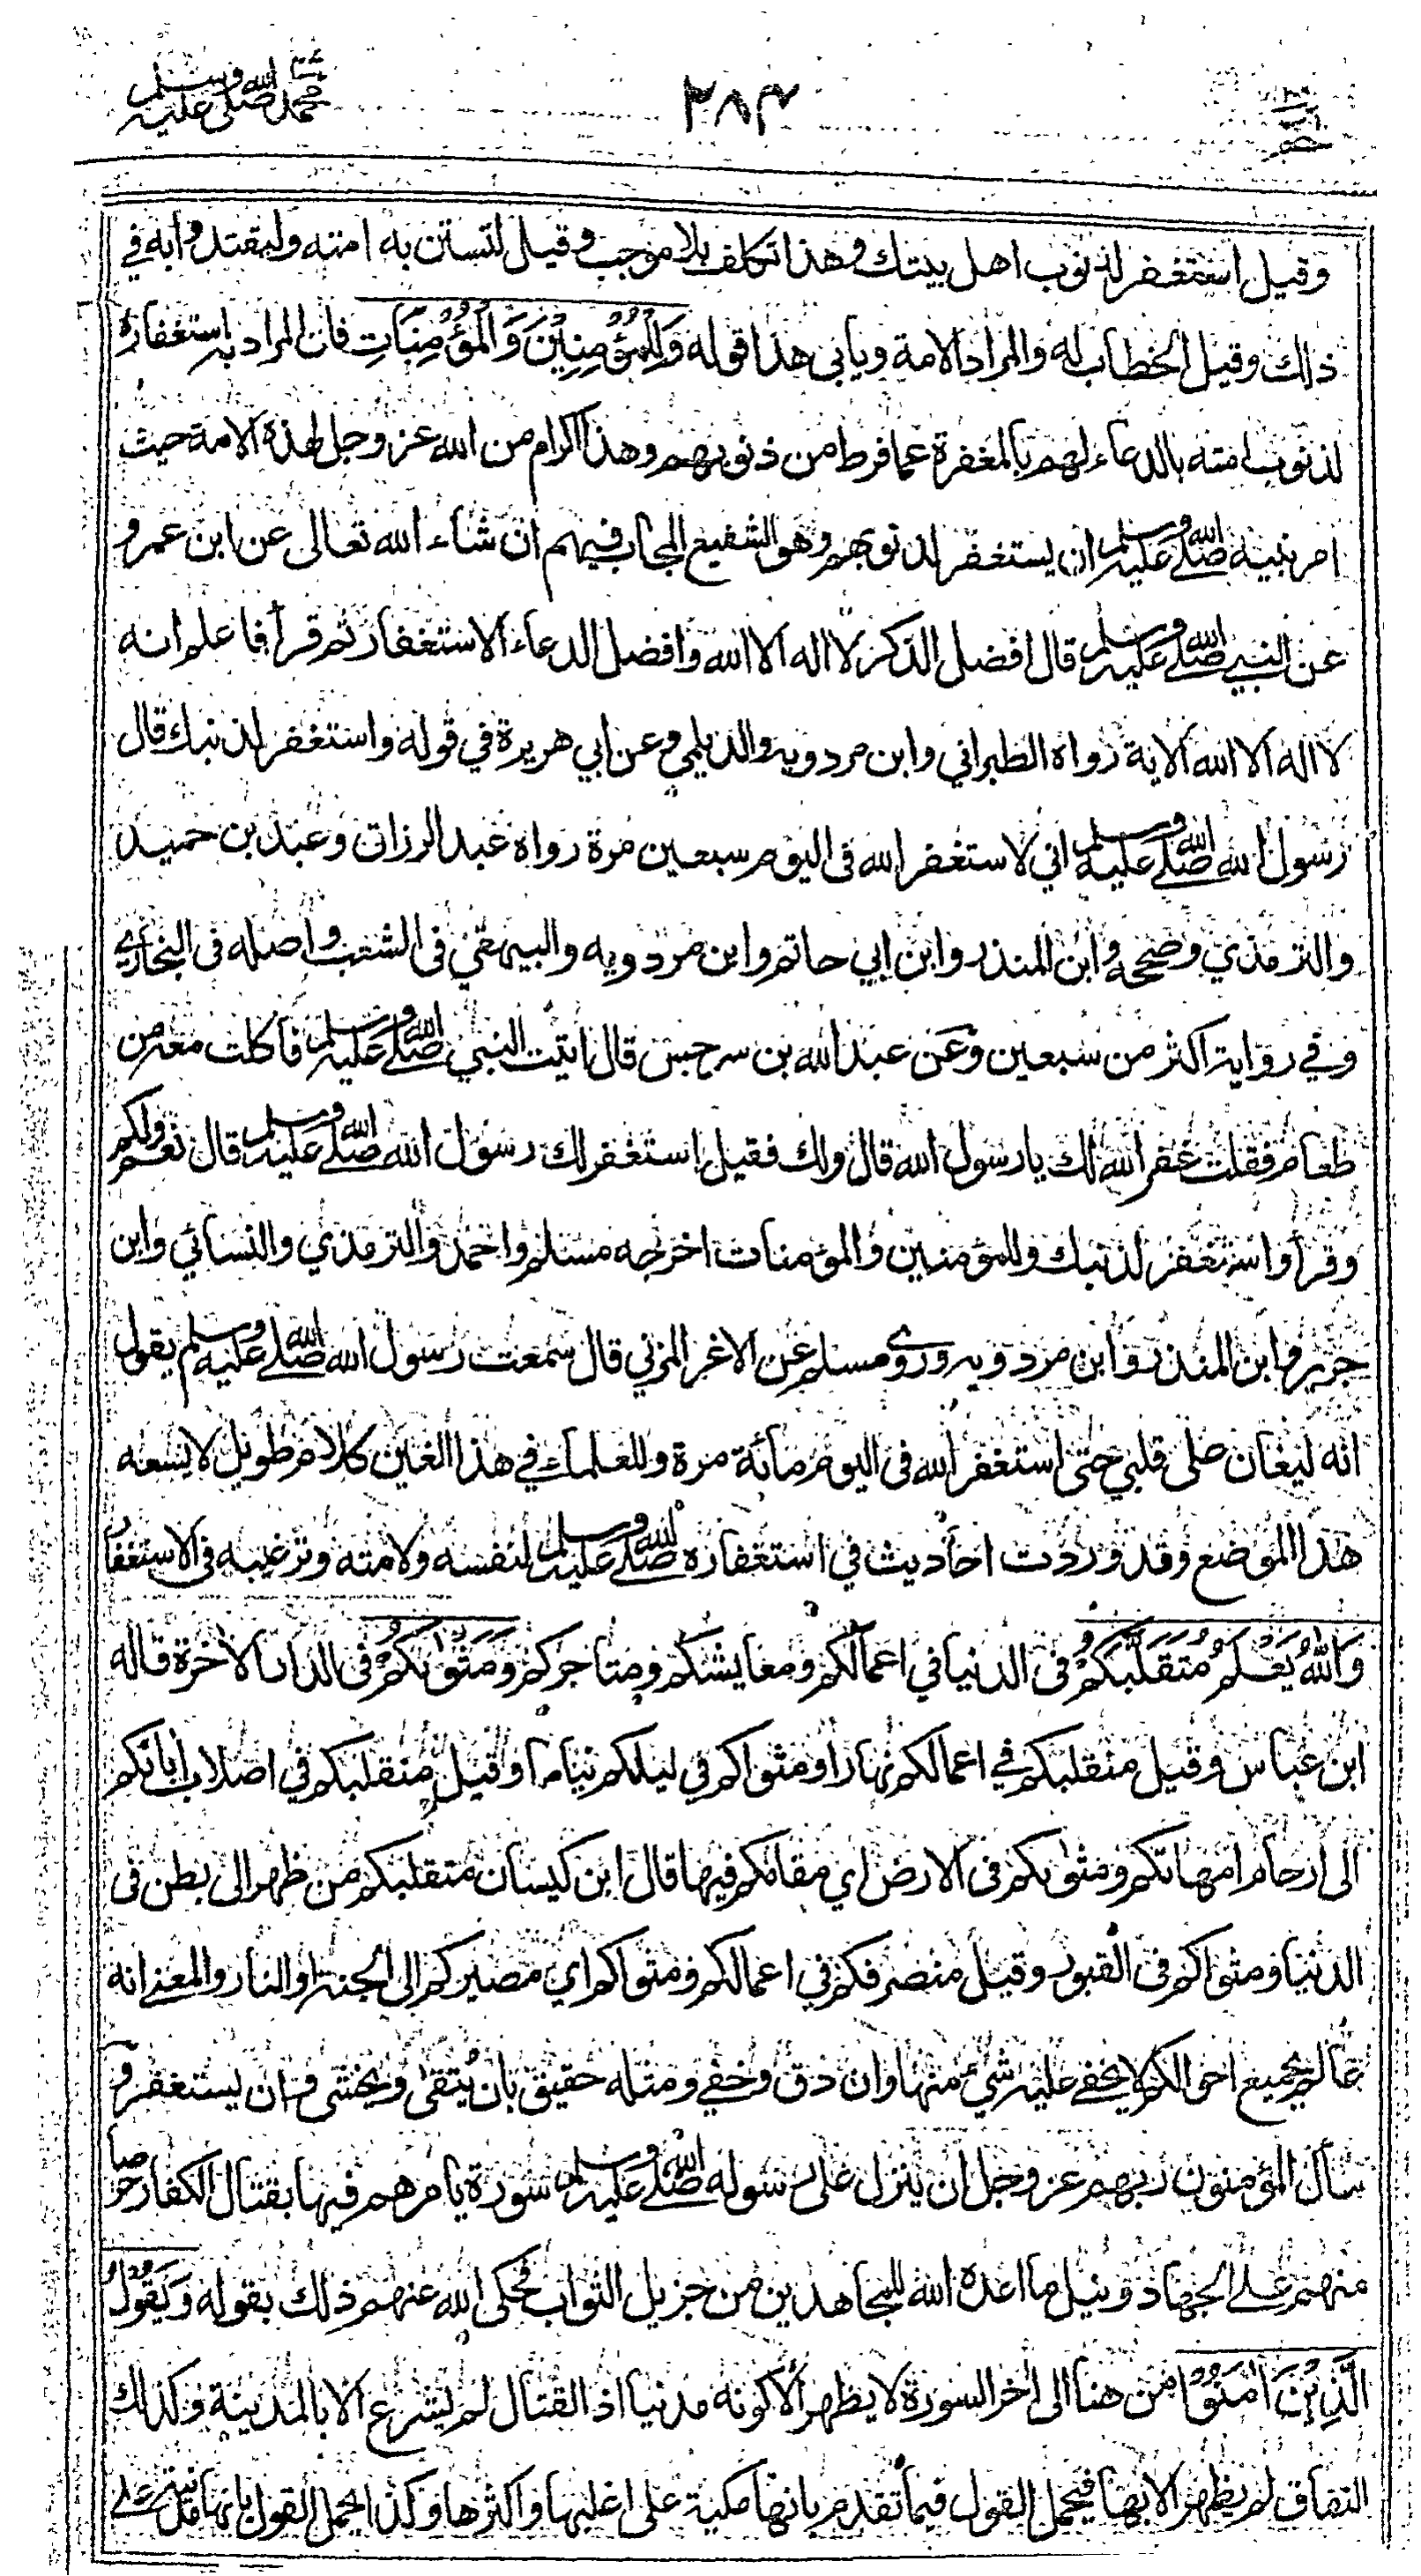 ٢٨٣
محمد صلى الله عليه وسلم
وقيل استغفر لذنوب اهل بيتك وهذا تكلف بلا موجب وقيل لتستن به امته وليقتدوا به في
ذلك وقيل الخطاب له والمراد الامة ويابى هذا قوله وَلِلْمُؤْمِنِيْنَ وَالْمُؤْمِنَاتِ فان المراد به استغفاره
لذنوب امته بالدعاء لهم بالمغفرة عما فرط من ذنوبهم وهذا اكرام من الله عز وجل لهذه الامة حيث
امر نبيه صلى الله عليه وسلم ان يستغفر لذنوبهم وهو الشفيع المجاب فيهم ان شاء الله تعالى عن ابن عمرو
عن النبي صلى الله عليه وسلم قال افضل الذكر لا اله الا الله وافضل الدعاء الاستغفار ثم قرأ فاعلم انه
لا اله الا الله الاية رواه الطبراني وابن مردويه والديلمي وعن ابي هريرة في قوله واستغفر لذنبك قال
رسول الله صلى الله عليه وسلم اني لاستغفر الله فى اليوم سبعين مرة رواه عبد الرزاق وعبد بن حميد
والترمذي وصححه وابن المنذر وابن ابي حاتم وابن مردويه والبيهقي فى الشعب واصله فى البخاري
وفي رواية اكثر من سبعين وعن عبد الله بن سرجس قال اتيت النبي صلى الله عليه وسلم فاكلت معه من
طعام فقلت غفر الله لك يا رسول الله قال ولك فقيل استغفر لك رسول الله صلى الله عليه وسلم قال نعم ولكم
وقرأ واستغفر لذنبك وللمؤمنين والمؤمنات اخرجه مسلم واحمد والترمذي والنسائي وابن
جرير وابن المنذر وابن مردويه وروى مسلم عن الاغر المزني قال سمعت رسول الله صلى الله عليه وسلم يقول
انه ليغان على قلبي حتى استغفر الله فى اليوم مائة مرة وللعلماء في هذا الغين كلام طويل لا يسعه
هذا الموضع وقد وردت احاديث في استغفاره صلى الله عليه وسلم لنفسه ولامته وترغيبه فى الاستغفار
وَاللّٰهُ يَعْلَمُ مُتَقَلَّبَكُمْ فى الدنيا في اعمالكم ومعايشكم ومتاجركم وَمَثْوٰىكُمْ فى الدار الاخرة قاله
ابن عباس وقيل متقلبكم في اعمالكم نهارا ومثواكم في ليلكم نياما وقيل متقلبكم في اصلاب ابائكم
الى ارحام امهاتكم ومثوٰىكم فى الارض اي مقامكم فيها قال ابن كيسان متقلبكم من ظهر الى بطن فى
الدنيا ومثواكم فى القبور وقيل منصرفكم في اعمالكم ومثواكم اي مصيركم الى الجنة او النار والمعنى انه
عالم بجميع احوالكم لا يخفى عليه شيء منها وان دق وخفي ومثله حقيق بان يتقى ويخشى وان يستغفر و
سأل المؤمنون ربهم عز وجل ان ينزل على رسوله صلى الله عليه وسلم سورة يامرهم فيها بقتال الكفار حرصا
منهم على الجهاد ونيل ما اعده الله للمجاهدين من جزيل الثواب فحكى الله عنهم ذلك بقوله وَيَقُوْلُ
الَّذِيْنَ اٰمَنُوْا من هنا الى اخر السورة لا يظهر الا كونه مدنيا اذ القتال لم يشرع الا بالمدينة وكذلك
النفاق لم يظهر الا بها فيحمل القول فيما تقدم بانها مكية على اغلبها واكثرها وكذا يحمل القول بانها مدنية على